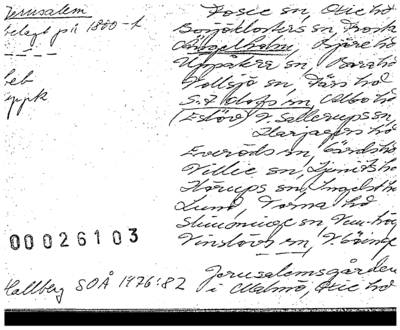 Jerusalem
belagt på 1800-t
Fosie sn, Oxie hd
Bosjöklosters sn, Frosta
Ängelholm, Bjäre hd
Uppåkra sn, Bara hd
Vollsjö sn, Färs hd
S:t Olofs sn, Albo hd
(Eslöv) V. Sallerups sn
Harjagers hd
Everöds sn, Gärds hd
Villie sn, Ljunits hd
Hörups sn, Ingelst h
Lund, Torna hd
Stiminge sn
Vinslövs sn, V. Göinge
Jerusalemsgården
i Malmö, Oxie hd
00026103
Hallberg SOÅ 1976:82